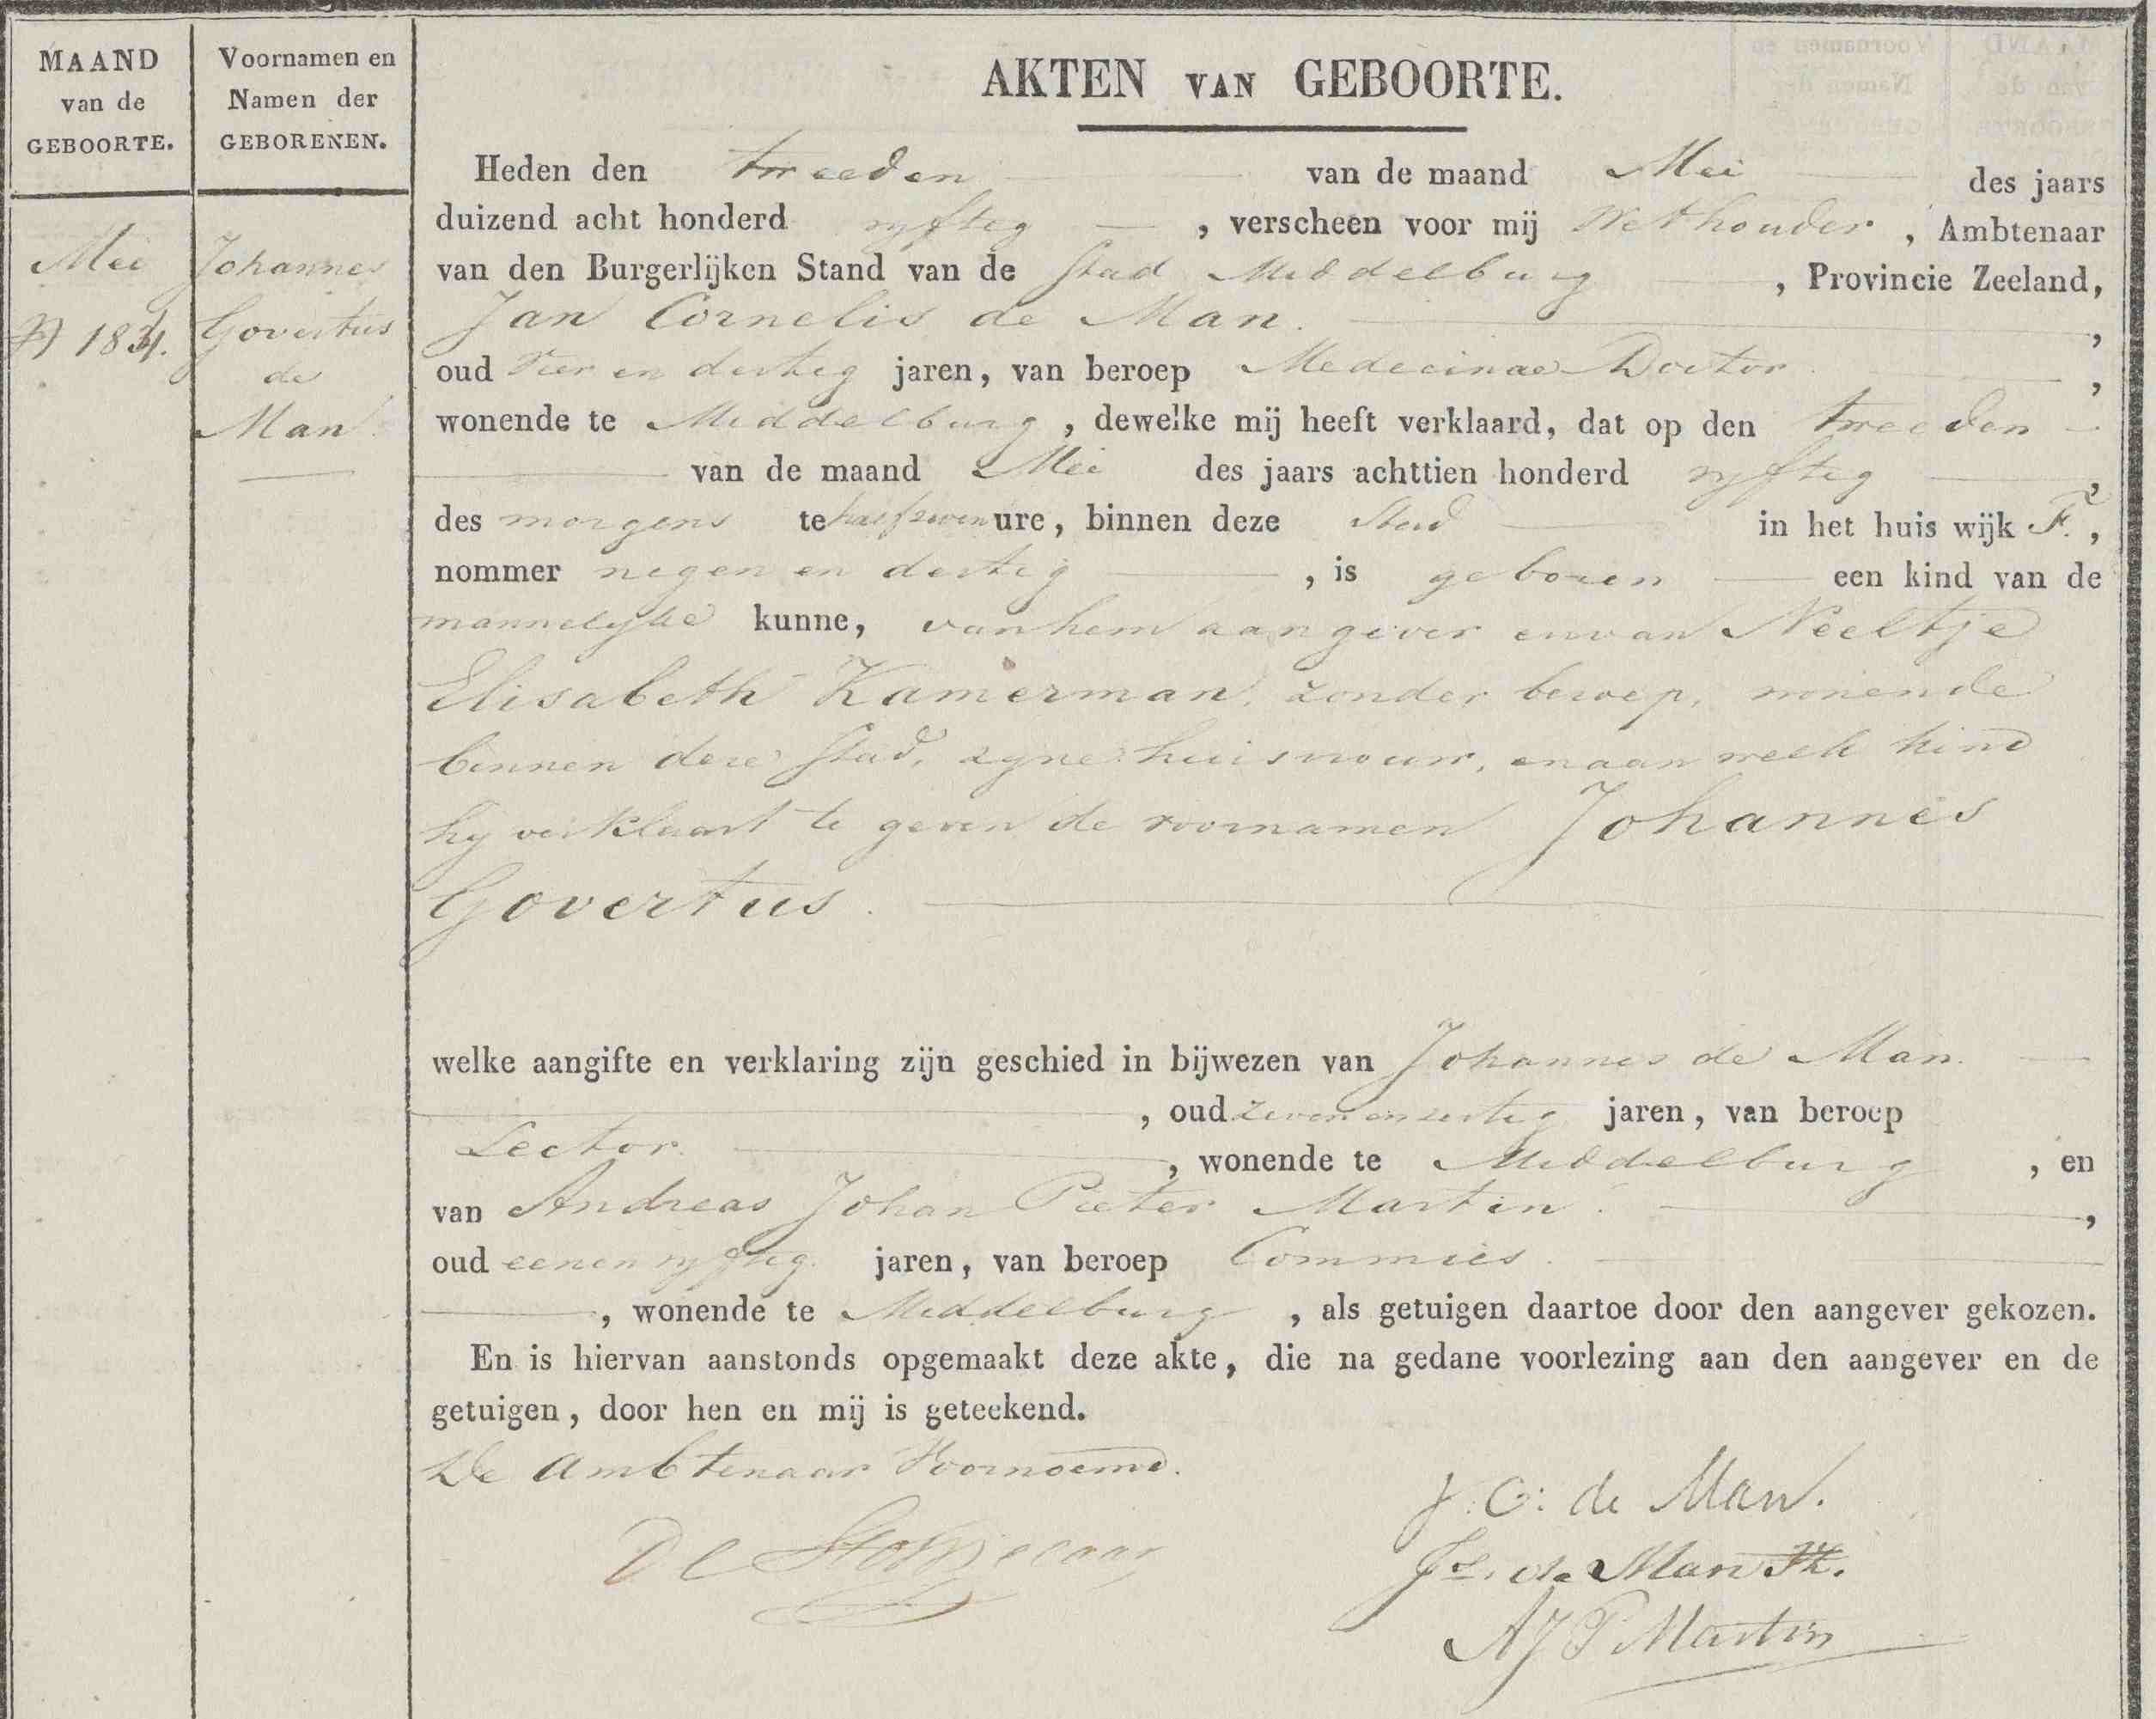 MAAND
van de
GEBOORTE.
Voornamen en
Namen der
GEBORENEN.
AKTEN VAN GEBOORTE.
Mei
Johannes
Govertus
de
Man
Heden den tweeden van de maand Mei des jaars
duizend acht honderd vyftig , verscheen voor mij Wethouder , Ambtenaar
van den Burgerlijken Stand van de Stad Middelburg , Provincie Zeeland,
Jan Cornelis de Man. ,
oud vier en dertig jaren, van beroep Medecinae Doctor ,
wonende te Middelburg , dewelke mij heeft verklaard, dat op den tweeden
van de maand Mei des jaars achttien honderd vyftig ,
des morgens te half zeven ure, binnen deze Stad in het huis wijk F. ,
nommer negen en dertig , is geboren een kind van de
mannelyke kunne, van hem aangever en van Neeltje
Elisabeth Kamerman, zonder beroep, wonende
binnen deze Stad, zyne huisvrouw, en aan welk kind
hy verklaart te geven de voornamen Johannes
Govertus.
welke aangifte en verklaring zijn geschied in bijwezen van Johannes de Man.
, oud zeven en zestig jaren, van beroep
Lector. , wonende te Middelburg , en
van Andreas Johan Pieter Martin. ,
oud een en vyftig jaren, van beroep Commies.
, wonende te Middelburg , als getuigen daartoe door den aangever gekozen.
En is hiervan aanstonds opgemaakt deze akte, die na gedane voorlezing aan den aangever en de
getuigen, door hen en mij is geteekend.
De Ambtenaar Voornoemd.
J. C. de Man.
Js. de Man
A J P Martin